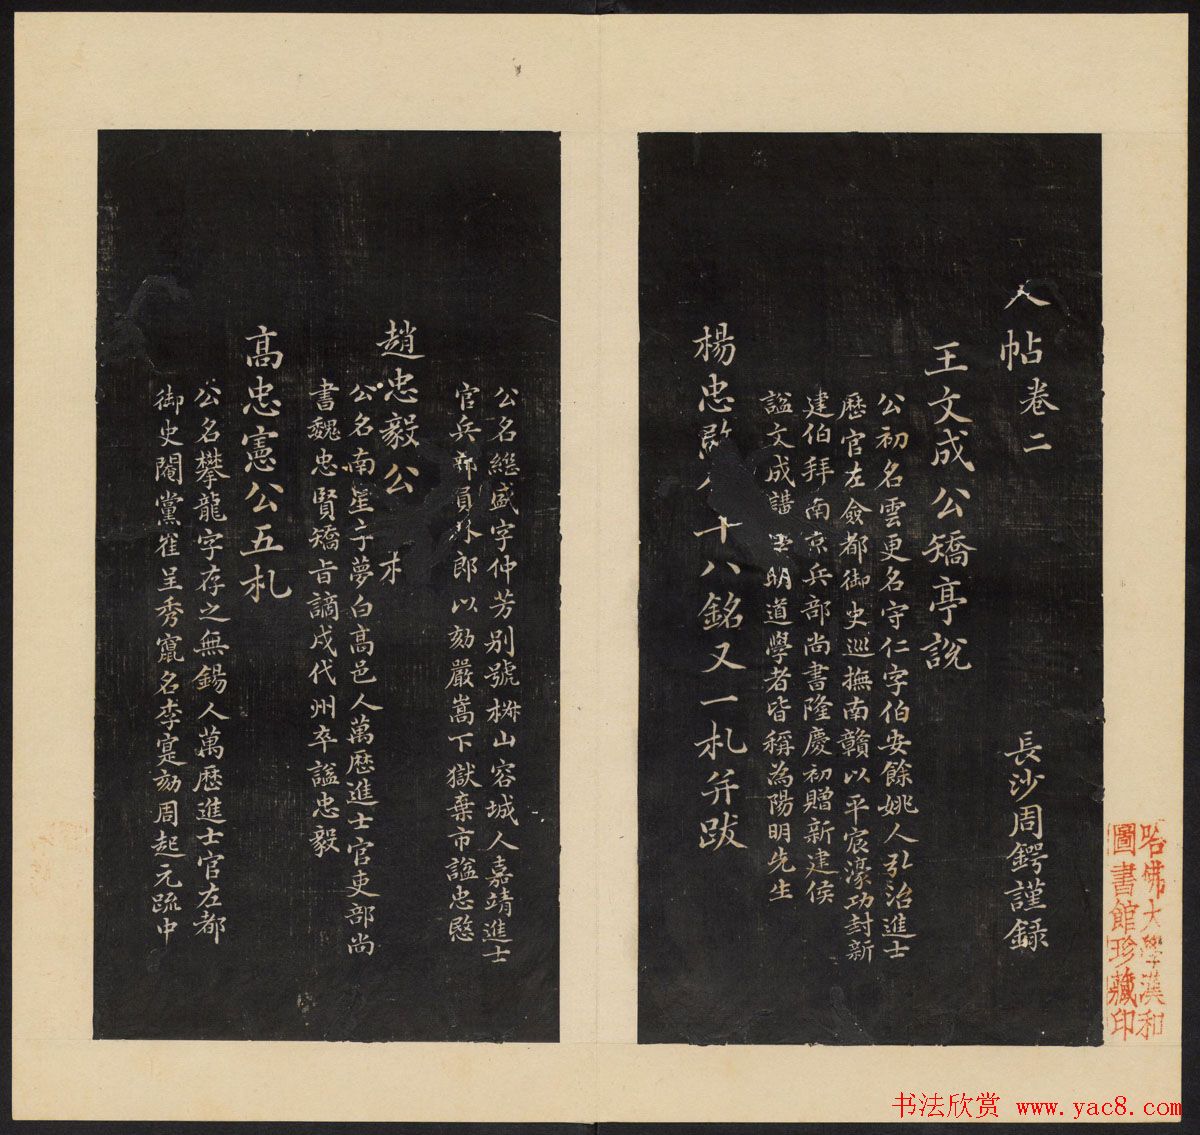 人帖卷二
長沙周鍔謹録
王文成公矯亭說
公初名雲更名守仁字伯安餘姚人弘治進士
歷官左僉都御史巡撫南贛以平宸濠功封新
建伯拜南京兵部尚書隆慶初贈新建侯
謚文成講學明道學者皆稱為陽明先生
楊忠愍十八銘又一札并跋
公名繼盛字仲芳別號椒山容城人嘉靖進士
官兵部員外郎以劾嚴嵩下獄棄市謚忠愍
趙忠毅公
公名南星字夢白高邑人萬歷進士官吏部尚
書魏忠賢矯旨謫戍代州卒謚忠毅
高忠憲公五札
公名攀龍字存之無錫人萬歷進士官左都
御史閹黨崔呈秀竄名李寔劾周起元疏中
哈佛大學漢和
圖書館珍藏印
书法欣赏 www.yac8.com